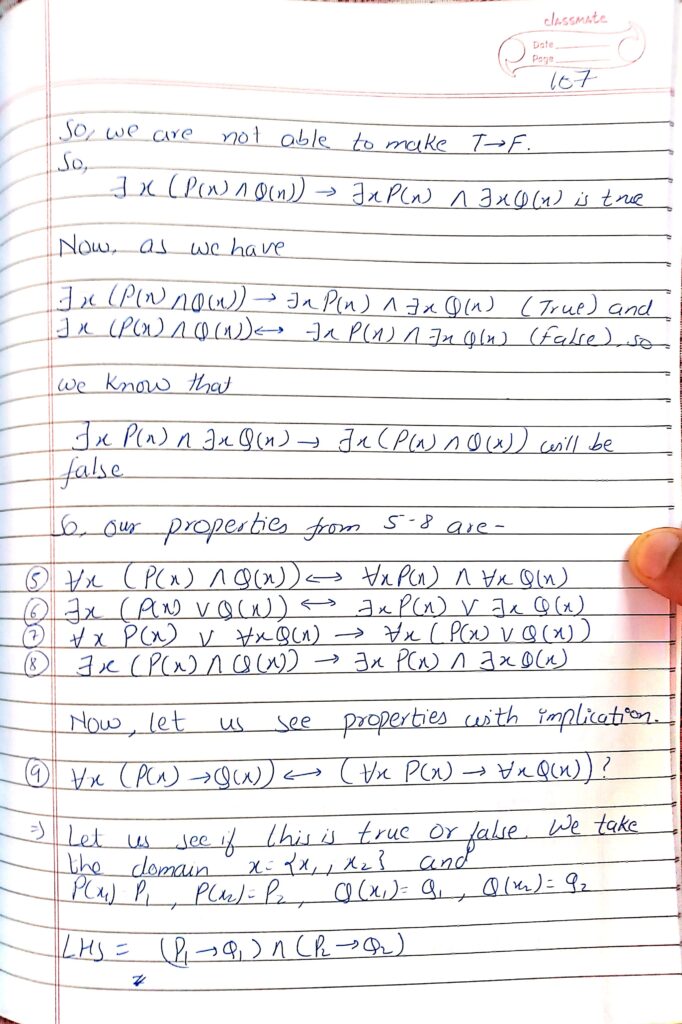 classmate
Date
Page
167
So, we are not able to make T→F.
So,
∃x (P(x) ∧ Q(x)) → ∃x P(x) ∧ ∃x Q(x) is true
Now, as we have
∃x (P(x) ∧ Q(x)) → ∃x P(x) ∧ ∃x Q(x) (True) and
∃x (P(x) ∧ Q(x)) ↔ ∃x P(x) ∧ ∃x Q(x) (false), so
we know that
∃x P(x) ∧ ∃x Q(x) → ∃x (P(x) ∧ Q(x)) will be
false
So, our properties from 5-8 are-
⑤ ∀x (P(x) ∧ Q(x)) ↔ ∀x P(x) ∧ ∀x Q(x)
⑥ ∃x (P(x) ∨ Q(x)) ↔ ∃x P(x) ∨ ∃x Q(x)
⑦ ∀x P(x) ∨ ∀x Q(x) → ∀x (P(x) ∨ Q(x))
⑧ ∃x (P(x) ∧ Q(x)) → ∃x P(x) ∧ ∃x Q(x)
Now, let us see properties with implication.
⑨ ∀x (P(x) → Q(x)) ↔ (∀x P(x) → ∀x Q(x))?
⇒ Let us see if this is true or false. We take
the domain x = {x₁, x₂} and
P(x₁) P₁, P(x₂) = P₂, Q(x₁) = Q₁, Q(x₂) = q₂
LHS = (P₁ → Q₁) ∧ (P₂ → Q₂)